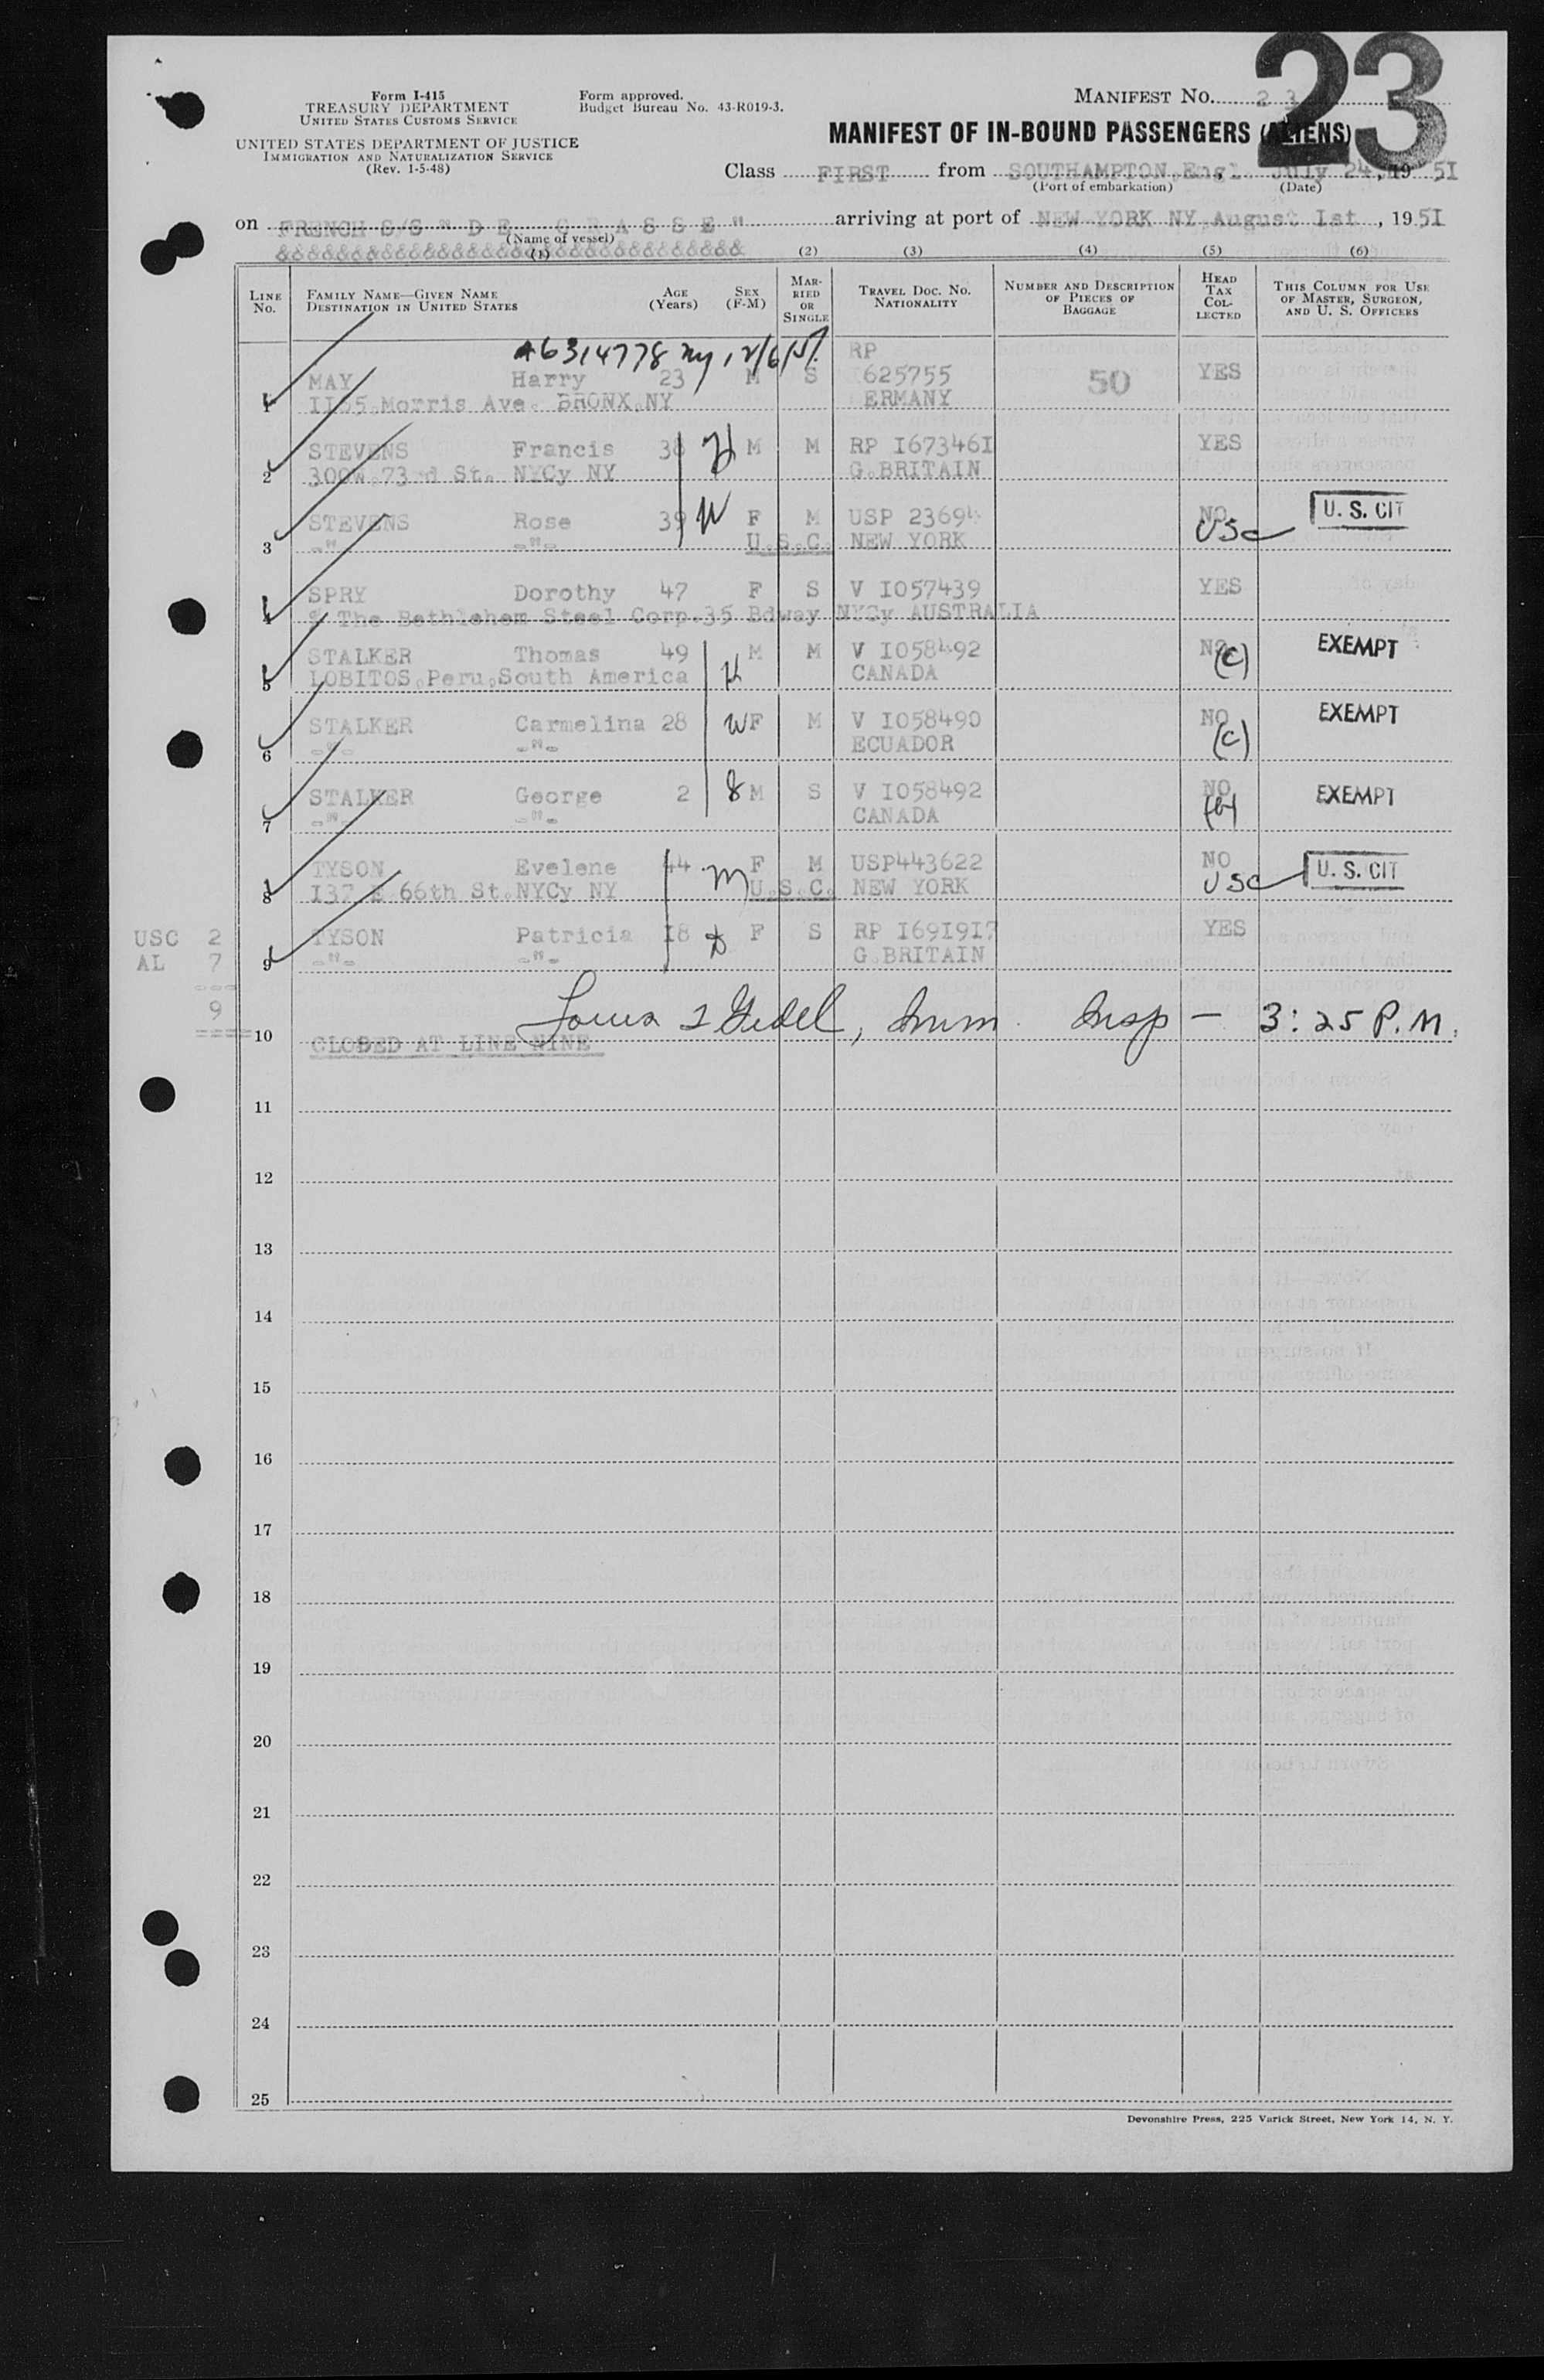 23
Form I-415
TREASURY DEPARTMENT
UNITED STATES CUSTOMS SERVICE
UNITED STATES DEPARTMENT OF JUSTICE
IMMIGRATION AND NATURALIZATION SERVICE
(Rev. 1-5-48)
Form approved.
Budget Bureau No. 43-R019-3.
MANIFEST NO. 23
MANIFEST OF IN-BOUND PASSENGERS (ALIENS)
Class FIRST from SOUTHAMPTON,Engl. July 24, 19 5I
(Port of embarkation) (Date)
on FRENCH S/S " D E G R A S S E " arriving at port of NEW YORK NY August Ist , 195I
(Name of vessel)
&&&&&&&&&&&&&&&&&&&&&&&&&&&&&&&&&&&&&
(1) (2) (3) (4) (5) (6)
LINE No. FAMILY NAME—GIVEN NAME DESTINATION IN UNITED STATES AGE (Years) SEX (F-M) MARRIED OR SINGLE TRAVEL DOC. NO. NATIONALITY NUMBER AND DESCRIPTION OF PIECES OF BAGGAGE HEAD TAX COLLECTED THIS COLUMN FOR USE OF MASTER, SURGEON, AND U. S. OFFICERS
A6314778 ny, 12/6/51 RP
MAY Harry 23 M S I625755 50 YES
1 II55 Morris Ave. BRONX NY ERMANY
STEVENS Francis 38 H M M RP I67346I YES
2 300W.73rd St. NYCy NY G.BRITAIN
STEVENS Rose 39 W F M USP 23694 NO USC U. S. CIT
3 -"- -"- U.S.C. NEW YORK
SPRY Dorothy 47 F S V I057439 YES
4 % The Bethlehem Steel Corp.35 Bdway NYCy AUSTRALIA
STALKER Thomas 49 M M V I058492 NO (C) EXEMPT
5 LOBITOS,Peru,South America H CANADA
STALKER Carmelina 28 W F M V I058490 NO (C) EXEMPT
6 -"- -"- ECUADOR
STALKER George 2 8 M S V I058492 NO EXEMPT
7 -"- -"- CANADA
TYSON Evelene 44 m F M USP443622 NO USC U. S. CIT
8 I37 E 66th St.NYCy NY U.S.C. NEW YORK
USC 2 TYSON Patricia I8 D F S RP I69I9I7 YES
AL 7 9 -"- -"- G.BRITAIN
---
9
====
10 CLOSED AT LINE NINE
Imm. Insp — 3:25 P.M.
11
12
13
14
15
16
17
18
19
20
21
22
23
24
25
Devonshire Press, 225 Varick Street, New York 14, N. Y.